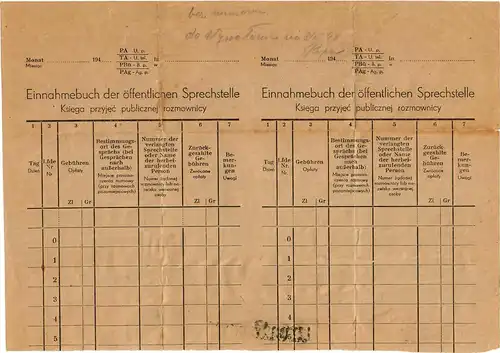 Monat
Miesiąc
194
PA - U. p.
TA - U. t.
PBh - S. p.
PAg - Ag. p.
in
w
Einnahmebuch der öffentlichen Sprechstelle
Księga przyjęć publicznej rozmownicy
1 2 3 4 5 6 7
Tag
Dzień
Lfde Nr
Nr.
Gebühren
Opłaty
Bestimmungs-
ort des Ge-
sprächs (bei
Gesprächen
nach
außerhalb)
Miejsce przezna-
czenia rozmowy
(przy rozmowach
pozamiejscowych)
Nummer der
verlangten
Sprechstelle
oder Name
der herbei-
zurufenden
Person
Numer żądanej
rozmównicy lub na-
zwisko wezwanej
osoby
Zurück-
gezahlte
Ge-
bühren
Zwrócone
opłaty
Be-
mer-
kungen
Uwagi
Zl Gr Zl Gr
0
1
2
3
4
5
Monat
Miesiąc
194
PA - U. p.
TA - U. t.
PBh - S. p.
PAg - Ag. p.
in
w
Einnahmebuch der öffentlichen Sprechstelle
Księga przyjęć publicznej rozmownicy
1 2 3 4 5 6 7
Tag
Dzień
Lfde Nr
Nr.
Gebühren
Opłaty
Bestimmungs-
ort des Ge-
sprächs (bei
Gesprächen
nach
außerhalb)
Miejsce przezna-
czenia rozmowy
(przy rozmowach
pozamiejscowych)
Nummer der
verlangten
Sprechstelle
oder Name
der herbei-
zurufenden
Person
Numer żądanej
rozmównicy lub na-
zwisko wezwanej
osoby
Zurück-
gezahlte
Ge-
bühren
Zwrócone
opłaty
Be-
mer-
kungen
Uwagi
Zl Gr Zl Gr
0
1
2
3
4
5